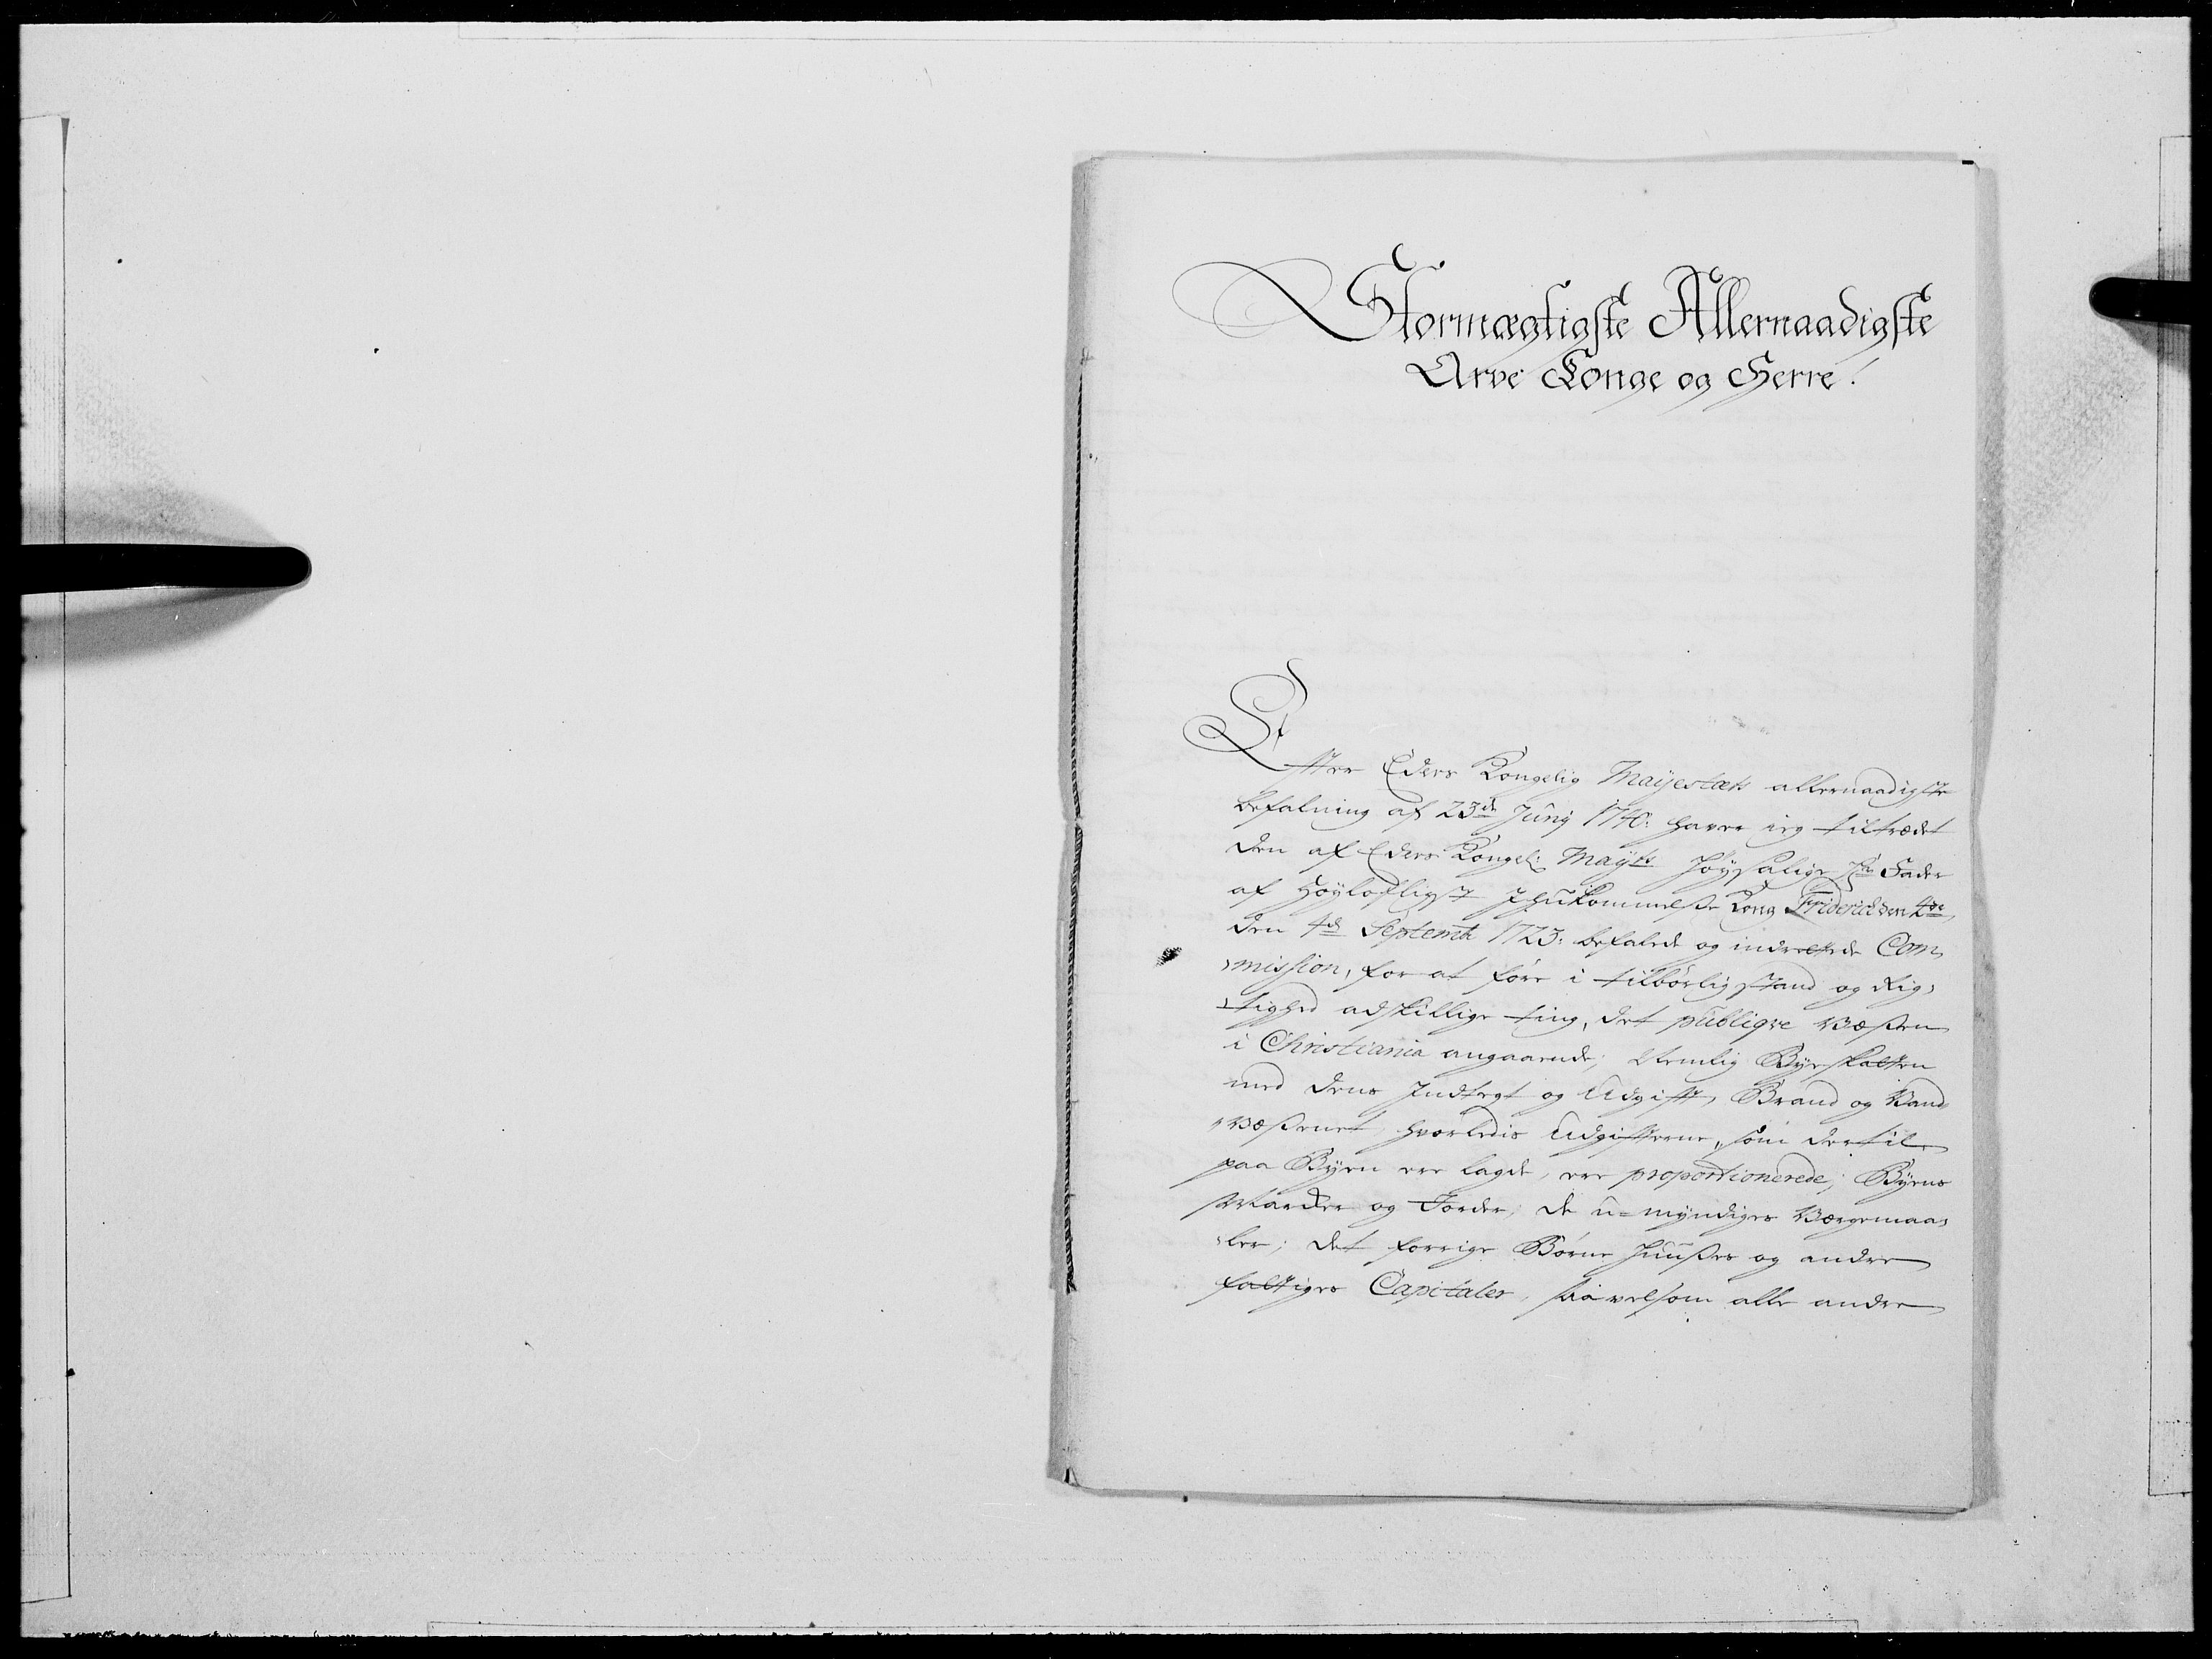 Stormægtigste Allernaadigste
Arve Konge og Herre!
Efter Eders Kongelig Mayestæts allernaadigste
befalning af 23de Junj 1740: haver jeg tiltrædet
den af Eders Kongel: Mayts Høysalige Hr Fader
af Høyloflligst Ihukommelse Kong Friderich den 4de
den 4de Septembr 1723: befalede og indrettede Com
mission, for at føre i tilbørlig stand og Rig,
tighed adskillige ting, det publiqve Væßen
i Christiania angaaende; Nemlig Byeskatten
med dens Indtegt og Udgift, Brand og Vand
Væßenet, hvorledis Udgifterne, som dertil
paa Byen ere lagde, ere proportionerede; Byens
Marker og Jorder, de u-myndiges Værgemaa,
ler; det forrige Børne Huußes og andre
fattiges Capitaler, saavelsom alle andre